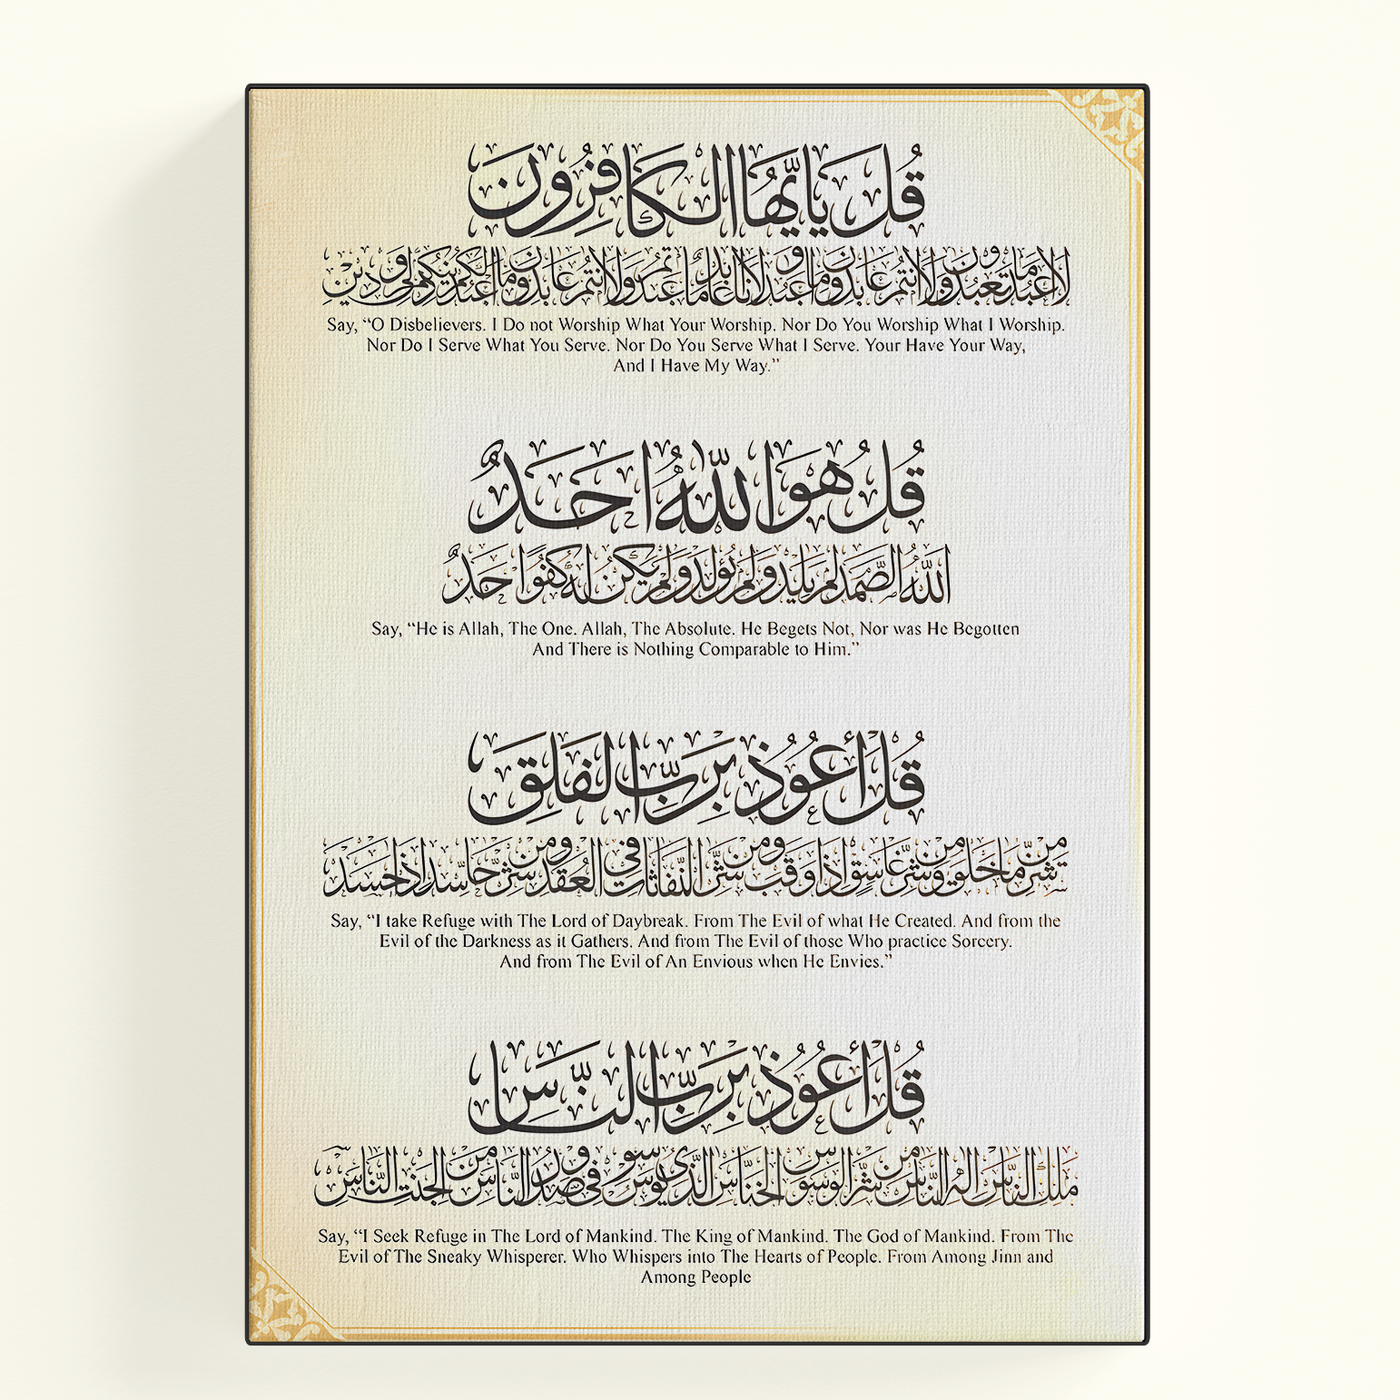 قُل يَايُّهَا الكَافِرُون
لا اعبد ما تعبدون ولا انتم عابدون ما اعبد ولا انا عابد ما عبدتم ولا انتم عابدون ما اعبد لكم دينكم ولي دين
Say, “O Disbelievers. I Do not Worship What Your Worship. Nor Do You Worship What I Worship.
Nor Do I Serve What You Serve. Nor Do You Serve What I Serve. Your Have Your Way,
And I Have My Way.”
قُل هُوَ اللّهُ احَدٌ
اللّهُ الصّمد لم يليد ولم يولد ولم يكن له كفوا حدٌ
Say, “He is Allah, The One. Allah, The Absolute. He Begets Not, Nor was He Begotten
And There is Nothing Comparable to Him.”
قُل أعُوذ بِرَبِّ الفَلِق
من شرّ ما خلق ومن شرّ غاسق اذا وقب ومن شرّ النّفاثات في العُقد ومن شرّ حاسد اذا حسد
Say, “I take Refuge with The Lord of Daybreak. From The Evil of what He Created. And from the
Evil of the Darkness as it Gathers. And from The Evil of those Who practice Sorcery.
And from The Evil of An Envious when He Envies.”
قُل أعُوُذ بِرَبِّ النّاسِ
ملك النّاس اله النّاس من شرّ الوسوس الخنّاس الّذي يوسوس في صدور النّاس من الجنت النّاس
Say, “I Seek Refuge in The Lord of Mankind. The King of Mankind. The God of Mankind. From The
Evil of The Sneaky Whisperer. Who Whispers into The Hearts of People. From Among Jinn and
Among People